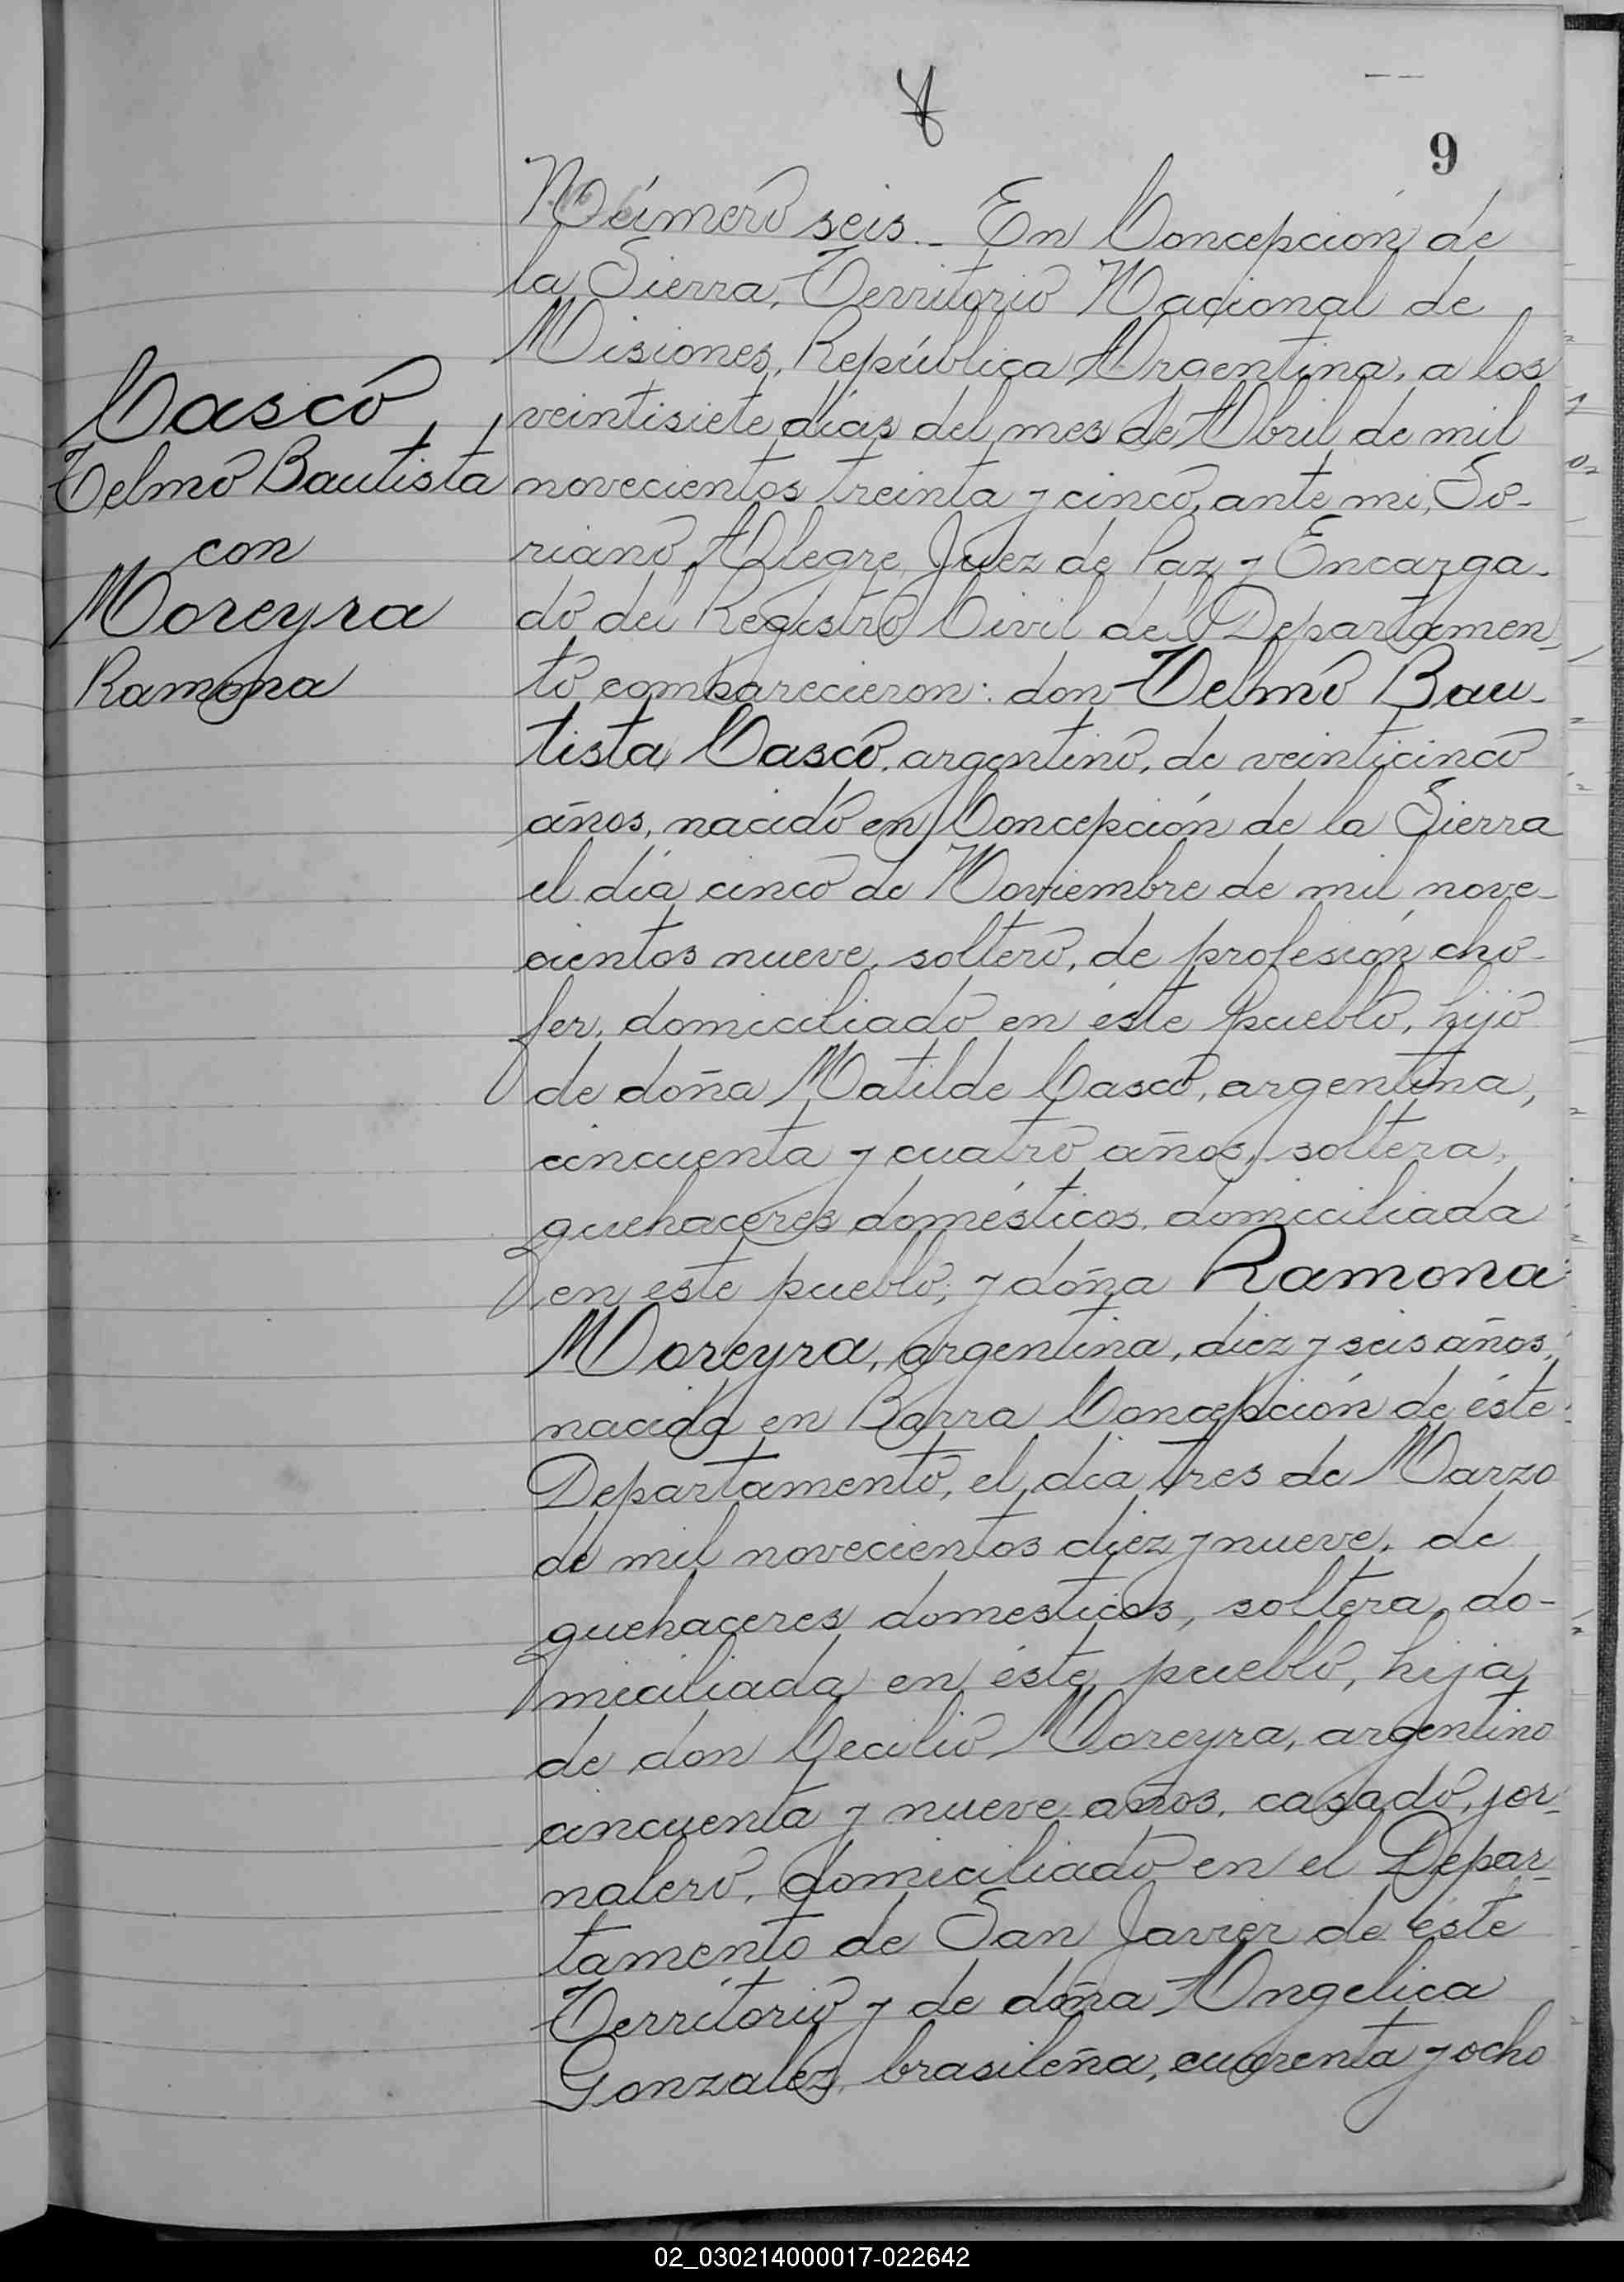 9
Casco
Telmo Bautista
con
Moreyra
Ramona
Número seis._ En Concepción de
la Sierra, Territorio Nacional de
Misiones, República Argentina, a los
veintisiete días del mes de Abril de mil
novecientos treinta y cinco, ante mi, So-
riano Alegre, Juez de Paz y Encarga-
do del Registro Civil del Departamen-
to comparecieron: don Telmo Bau-
tista Casco, argentino, de veinticinco
años, nacido en Concepción de la Sierra
el día cinco de Noviembre de mil nove-
cientos nueve, soltero, de profesión cho-
fer, domiciliado en éste pueblo, hijo
de doña Matilde Casco, argentina,
cincuenta y cuatro años, soltera,
quehaceres domésticos, domiciliada
en este pueblo; y doña Ramona
Moreyra, argentina, diez y seis años,
nacida en Barra Concepción de éste
Departamento, el día tres de Marzo
de mil novecientos diez y nueve, de
quehaceres domesticos, soltera, do-
miciliada en éste pueblo, hija
de don Cecilio Moreyra, argentino
cincuenta y nueve años, casado, jor-
nalero, domiciliado en el Depar-
tamento de San Javier de éste
Territorio y de doña Angelica
Gonzalez, brasileña, cuarenta y ocho
02_030214000017-022642